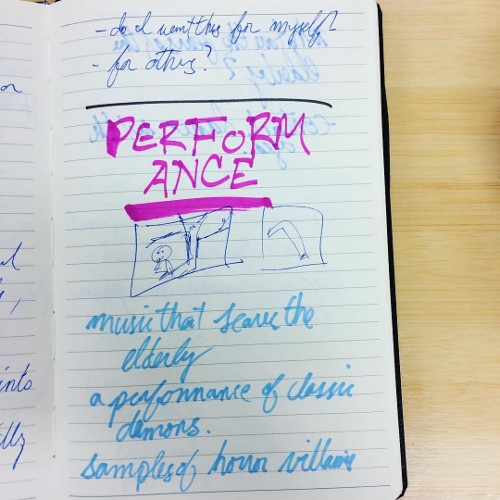 - do I want this for myself?
- for others?
PERFORM
ANCE
music that scares the
elderly
a performance of classic
demons.
samples of horror villains
or
ints
lly